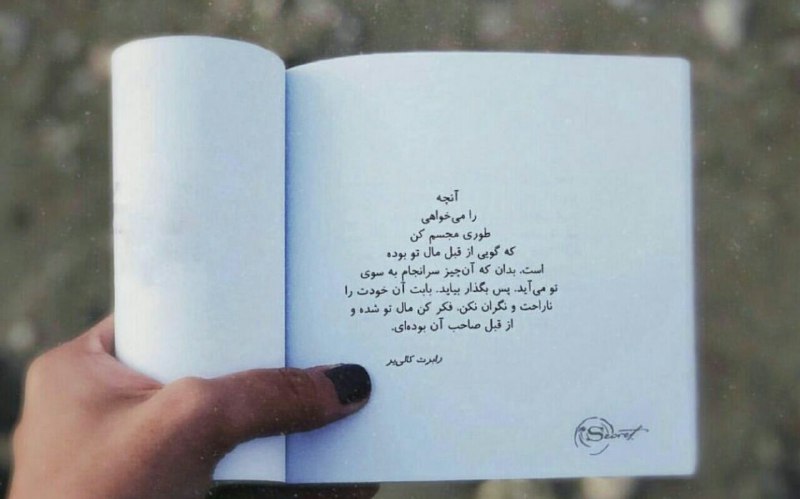 آنچه
را می‌خواهی
طوری مجسم کن
که گویی از قبل مال تو بوده
است. بدان که آن‌چیز سرانجام به سوی
تو می‌آید. پس بگذار بیاید. بابت آن خودت را
ناراحت و نگران نکن. فکر کن مال تو شده و
از قبل صاحب آن بوده‌ای.
رابرت کالی‌یر
Secret